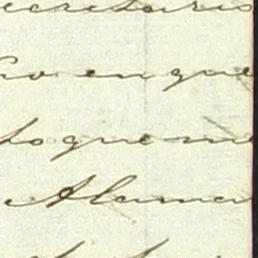 ecretario
ro en que
lo que me
Alama